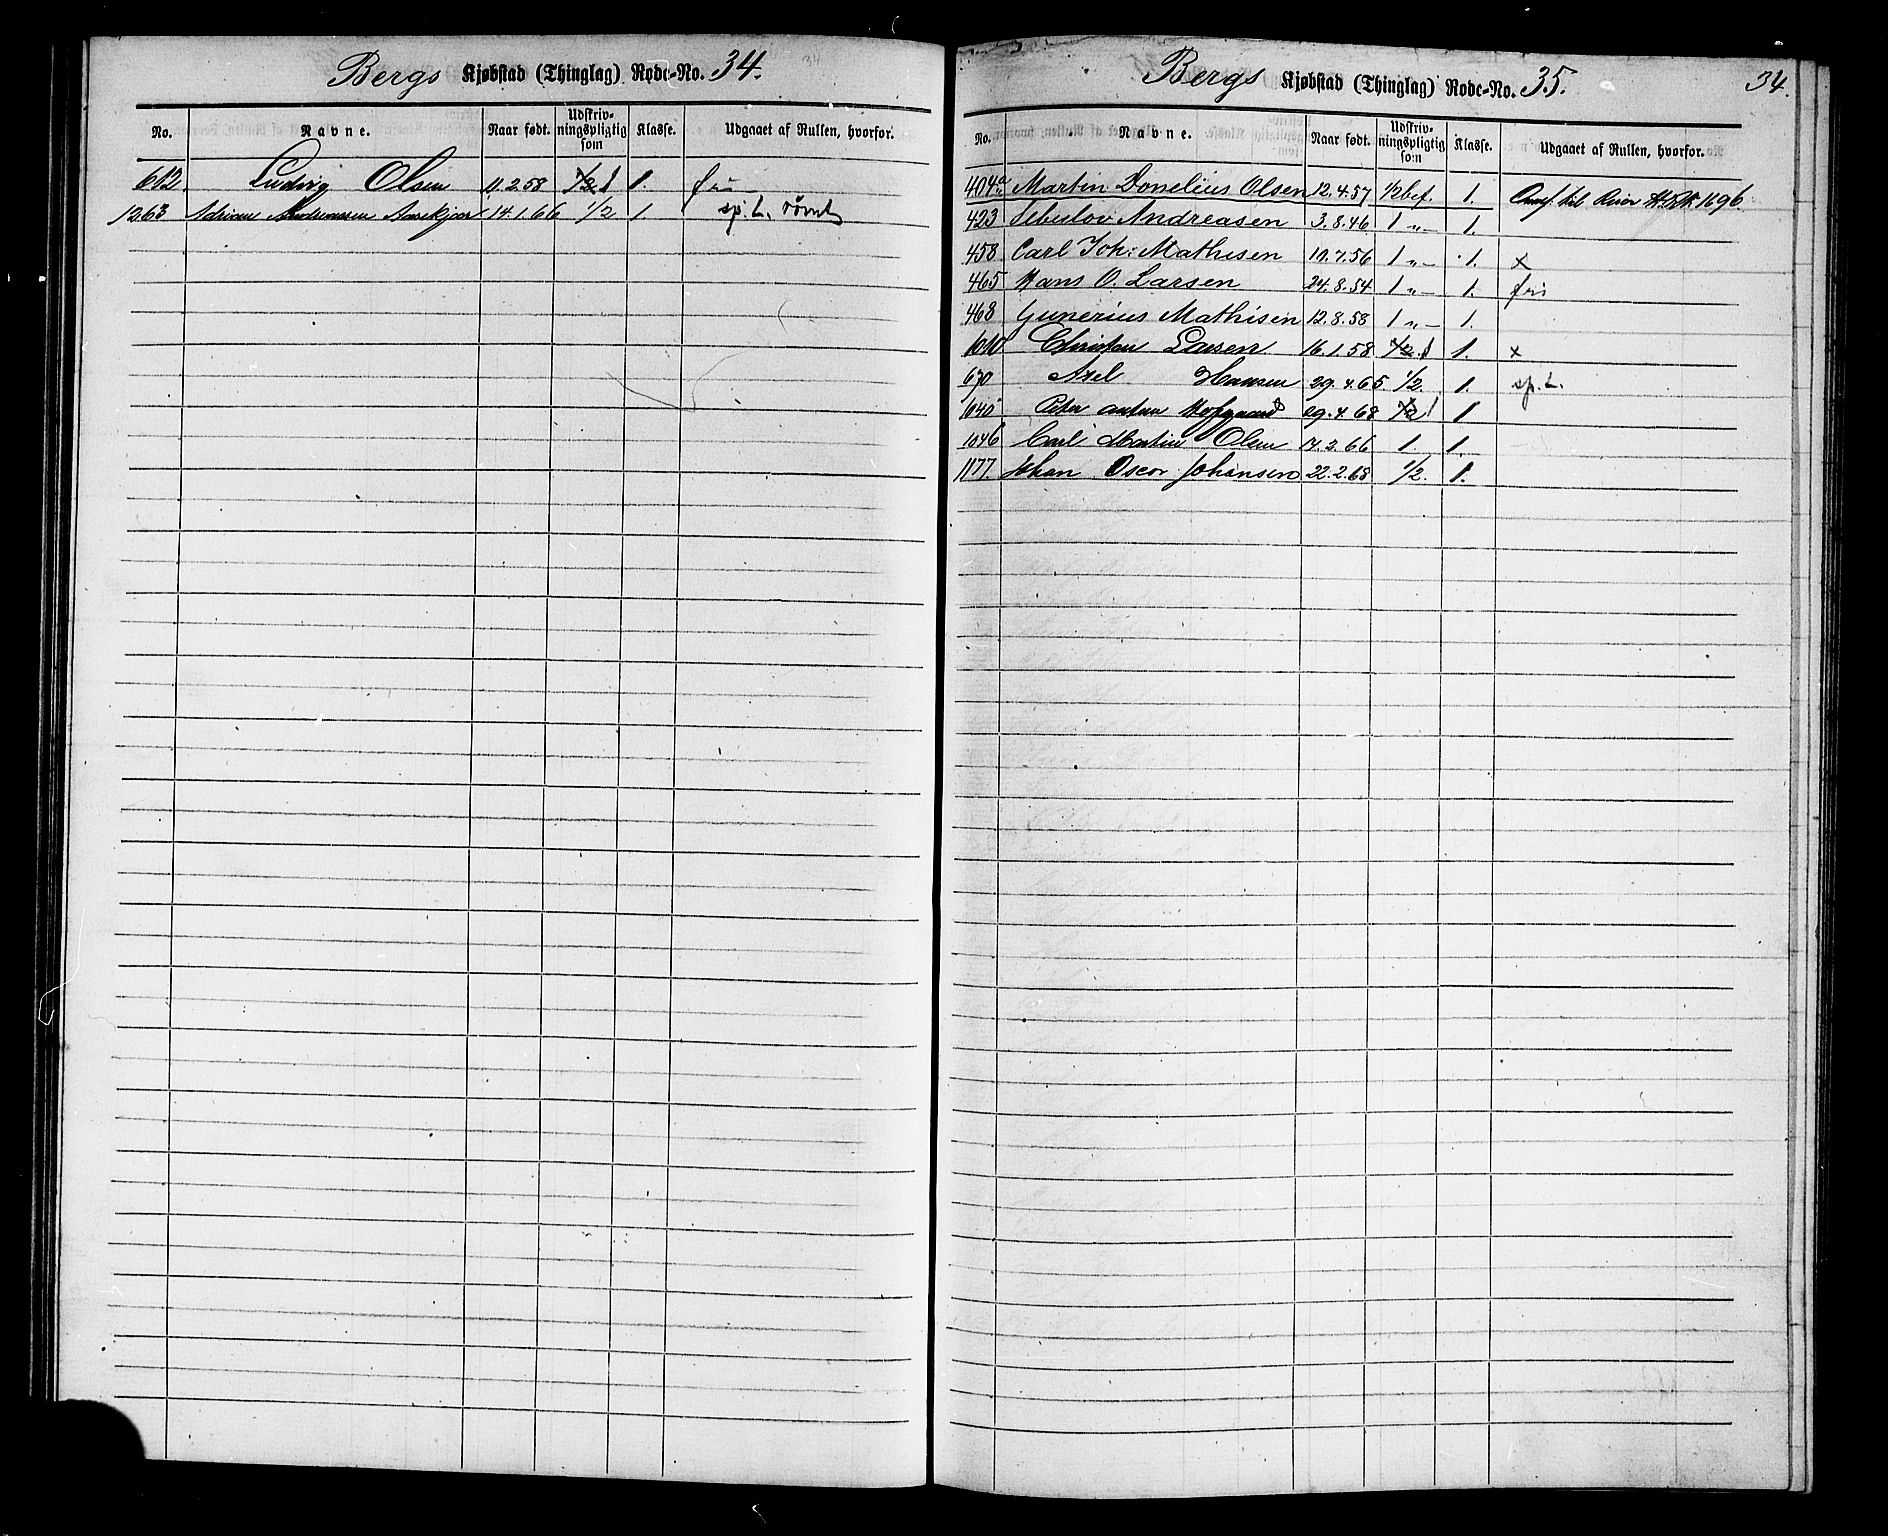 Bergs Kjøbstad (Thinglag) Rode-No. 34.
No. Navne. Naar født. Udskriv-ningspligtig som Klasse. Udgaaet af Rullen, hvorfor.
612. Ludvig Olsen 11.2.58 1/2 1 1. fri
1263 Adrian Andreassen Aaserkjær 14.1.66 1/2 1. sp. L. rømt
Bergs Kjøbstad (Thinglag) Rode-No. 35. 34.
No. Navne. Naar født. Udskriv-ningspligtig som Klasse. Udgaaet af Rullen, hvorfor.
404a Martin Donelius Olsen 12.4.57 1/2 bef. 1. til 1696.
423 Sebulov Andreasen 3.8.46 1 „ — 1.
458 Carl Joh: Mathisen 10.7.56 1 „ — 1. x
465 Hans O. Larsen 24.8.54 1 „ — 1. fri
468 Gunerius Mathisen 12.8.58 1 „ — 1.
1010 Christian Larsen 16.1.58 1/2 1 1. x
670 Axel Hansen 29.4.65 1/2. 1. sp. L.
1045 Peter Anton 29.4.68 1/2 1 1
1046 Carl Martin Olsen 17.3.66 1 1.
1177. Johan Oscar Johansen 22.2.68 1/2. 1.